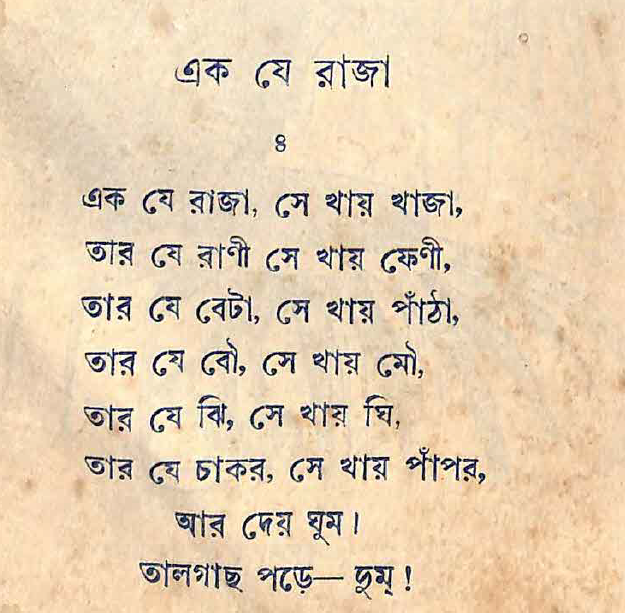 এক যে রাজা
৪
এক যে রাজা, সে খায় খাজা,
তার যে রাণী সে খায় ফেণী,
তার যে বেটা, সে খায় পাঁঠা,
তার যে বৌ, সে খায় মৌ,
তার যে ঝি, সে খায় ঘি,
তার যে চাকর, সে খায় পাঁপর,
আর দেয় ঘুম।
তালগাছ পড়ে— দুম্!